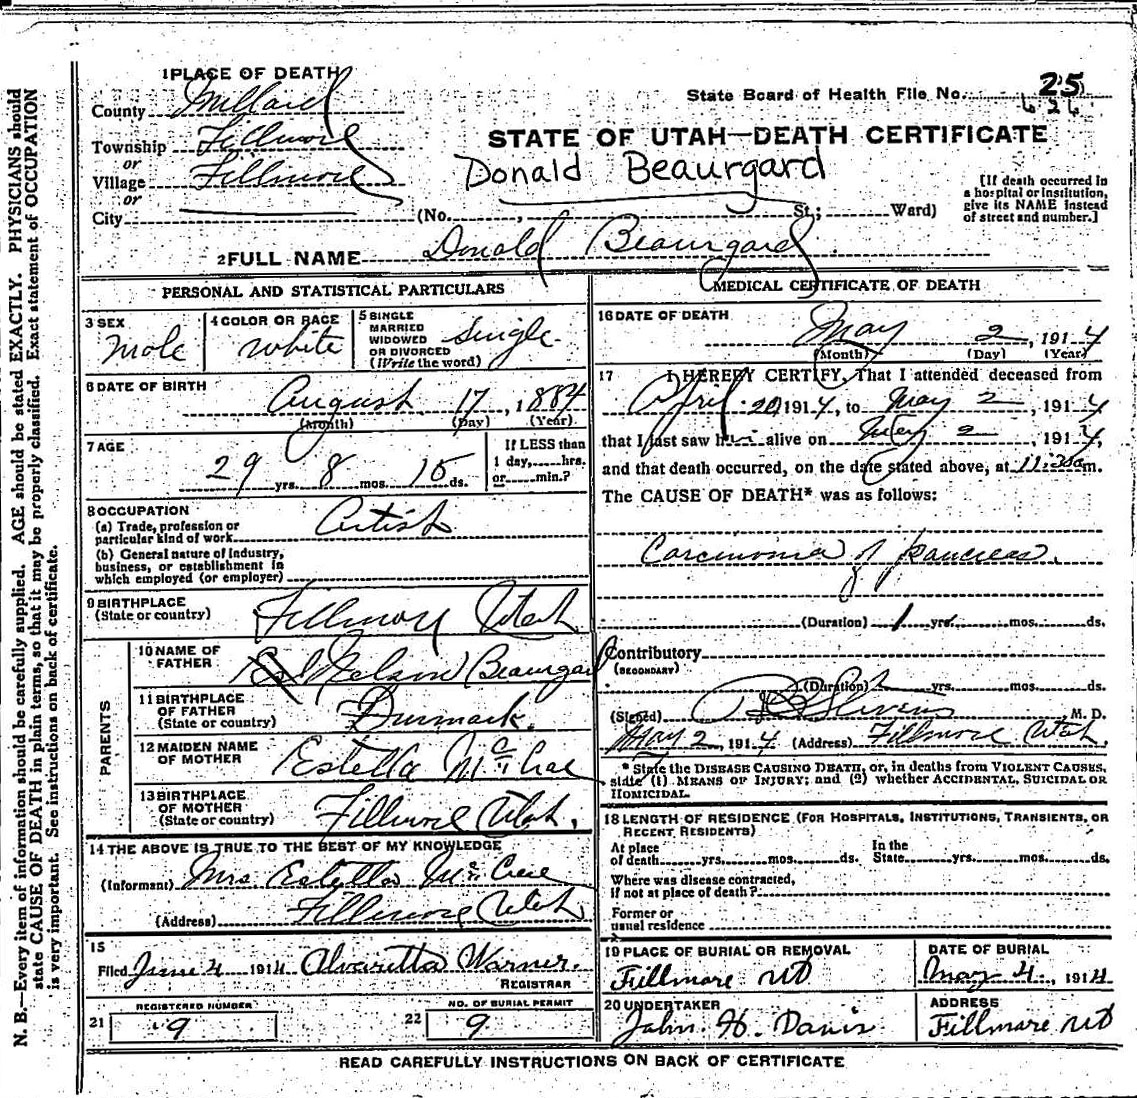 N. B.—Every item of information should be carefully supplied. AGE should be stated EXACTLY. PHYSICIANS should
state CAUSE OF DEATH in plain terms, so that it may be properly classified. Exact statement of OCCUPATION
is very important. See instructions on back of certificate.
1 PLACE OF DEATH
County Millard
Township Fillmore
or
Village Fillmore
or
City
State Board of Health File No. 25
626
STATE OF UTAH—DEATH CERTIFICATE
Donald Beaurgard
(No. , St.; Ward)
[If death occurred in
a hospital or institution,
give its NAME instead
of street and number.]
2 FULL NAME Donald Beaurgard
PERSONAL AND STATISTICAL PARTICULARS
3 SEX
Male
4 COLOR OR RACE
White
5 SINGLE
MARRIED
WIDOWED
OR DIVORCED
(Write the word)
Single
6 DATE OF BIRTH
August 17, 1884
(Month) (Day) (Year)
7 AGE
29 yrs. 8 mos. 15 ds.
If LESS than
1 day, hrs.
or min.?
8 OCCUPATION
(a) Trade, profession or
particular kind of work Artist
(b) General nature of industry,
business, or establishment in
which employed (or employer)
9 BIRTHPLACE
(State or country) Fillmore Utah
PARENTS
10 NAME OF
FATHER Nelson Beaurgard
11 BIRTHPLACE
OF FATHER
(State or country) Denmark.
12 MAIDEN NAME
OF MOTHER Estella
13 BIRTHPLACE
OF MOTHER
(State or country) Fillmore Utah.
14 THE ABOVE IS TRUE TO THE BEST OF MY KNOWLEDGE
(Informant) Mrs Estella
(Address) Fillmore Utah
15
Filed June 4 1914 Alvaretta Warner.
REGISTRAR
REGISTERED NUMBER
21 9
NO. OF BURIAL PERMIT
22 9
MEDICAL CERTIFICATE OF DEATH
16 DATE OF DEATH
May 2, 1914
(Month) (Day) (Year)
17 I HEREBY CERTIFY, That I attended deceased from
April 20 1914, to May 2, 1914
that I last saw him alive on May 2, 1914,
and that death occurred, on the date stated above, at m.
The CAUSE OF DEATH* was as follows:
Carcinoma of pancreas.
(Duration) 1 yrs. mos. ds.
Contributory
(SECONDARY)
(Duration) yrs. mos. ds.
(Signed) Stevens M. D.
May 2, 1914 (Address) Fillmore Utah.
* State the DISEASE CAUSING DEATH, or, in deaths from VIOLENT CAUSES,
state (1) MEANS OF INJURY; and (2) whether ACCIDENTAL, SUICIDAL OR
HOMICIDAL.
18 LENGTH OF RESIDENCE (FOR HOSPITALS, INSTITUTIONS, TRANSIENTS, OR
RECENT RESIDENTS)
At place
of death yrs. mos. ds.
In the
State yrs. mos. ds.
Where was disease contracted,
if not at place of death?
Former or
usual residence
19 PLACE OF BURIAL OR REMOVAL
Fillmore UT
DATE OF BURIAL
May 4, 1914
20 UNDERTAKER
John H. Davis
ADDRESS
Fillmore UT
READ CAREFULLY INSTRUCTIONS ON BACK OF CERTIFICATE